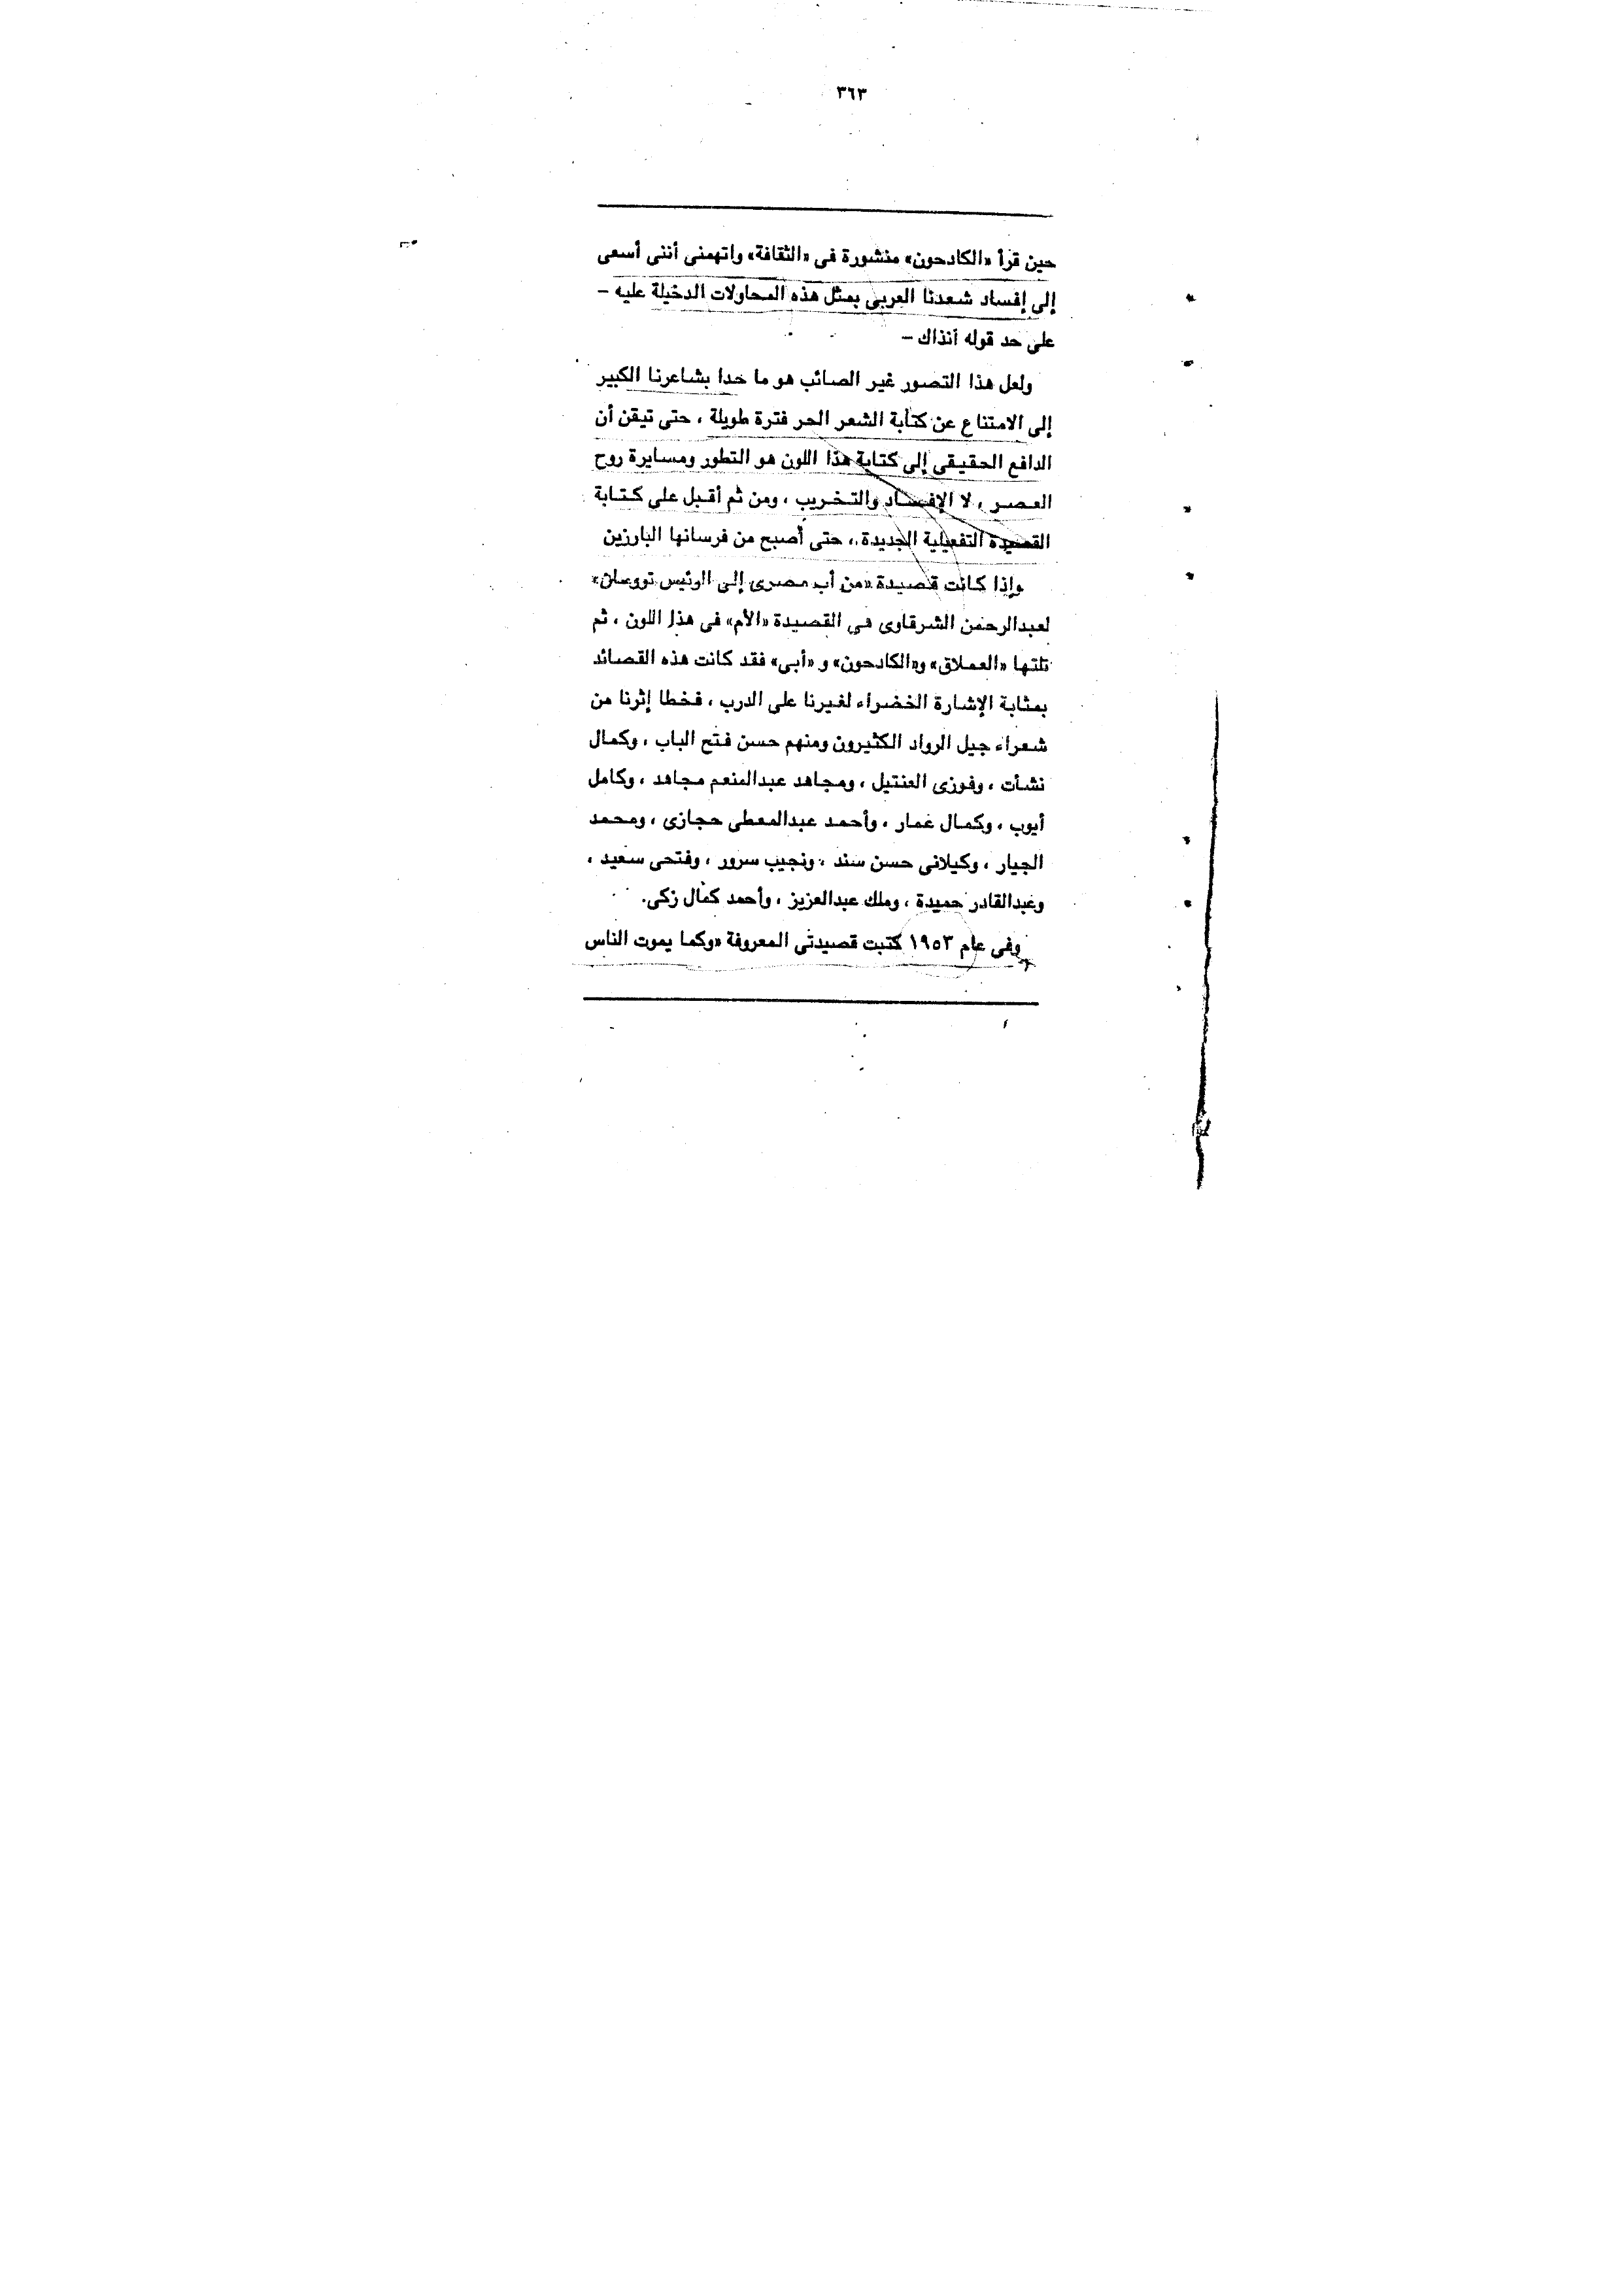 ٣٦٣
حين قرأ «الكادحون» منشورة فى «الثقافة» واتهمنى أننى أسعى
إلى إفساد شعدنا العربى بمثل هذه المحاولات الدخيلة عليه –
على حد قوله آنذاك –
ولعل هذا التصور غير الصائب هو ما حدا بشاعرنا الكبير
إلى الامتناع عن كتابة الشعر الحر فترة طويلة ، حتى تيقن أن
الدافع الحقيقى إلى كتابة هذا اللون هو التطور ومسايرة روح
العصر ، لا الإفساد والتخريب ، ومن ثم أقبل على كتابة
القصيدة التفعيلية الجديدة ، حتى أصبح من فرسانها البارزين
وإذا كانت قصيدة «من أب مصرى إلى الرئيس ترومان»
لعبدالرحمن الشرقاوى هى القصيدة «الأم» فى هذا اللون ، ثم
تلتها «العملاق» و«الكادحون» و «أبى» فقد كانت هذه القصائد
بمثابة الإشارة الخضراء لغيرنا على الدرب ، فخطا إثرنا من
شعراء جيل الرواد الكثيرون ومنهم حسن فتح الباب ، وكمال
نشأت ، وفوزى العنتيل ، ومجاهد عبدالمنعم مجاهد ، وكامل
أيوب ، وكمال عمار ، وأحمد عبدالمعطى حجازى ، ومحمد
الجيار ، وكيلانى حسن سند ، ونجيب سرور ، وفتحى سعيد ،
وعبدالقادر حميدة ، وملك عبدالعزيز ، وأحمد كمال زكى.
وفى عام ١٩٥٣ كتبت قصيدتى المعروفة «وكما يموت الناس